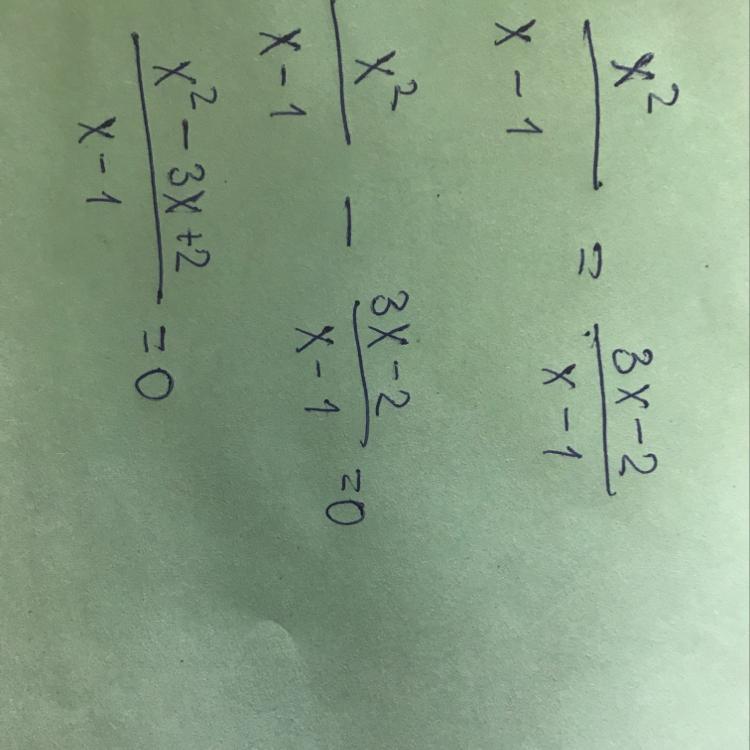 x² / x - 1 = 3x - 2 / x - 1
x² / x - 1 - 3x - 2 / x - 1 = 0
x² - 3x + 2 / x - 1 = 0